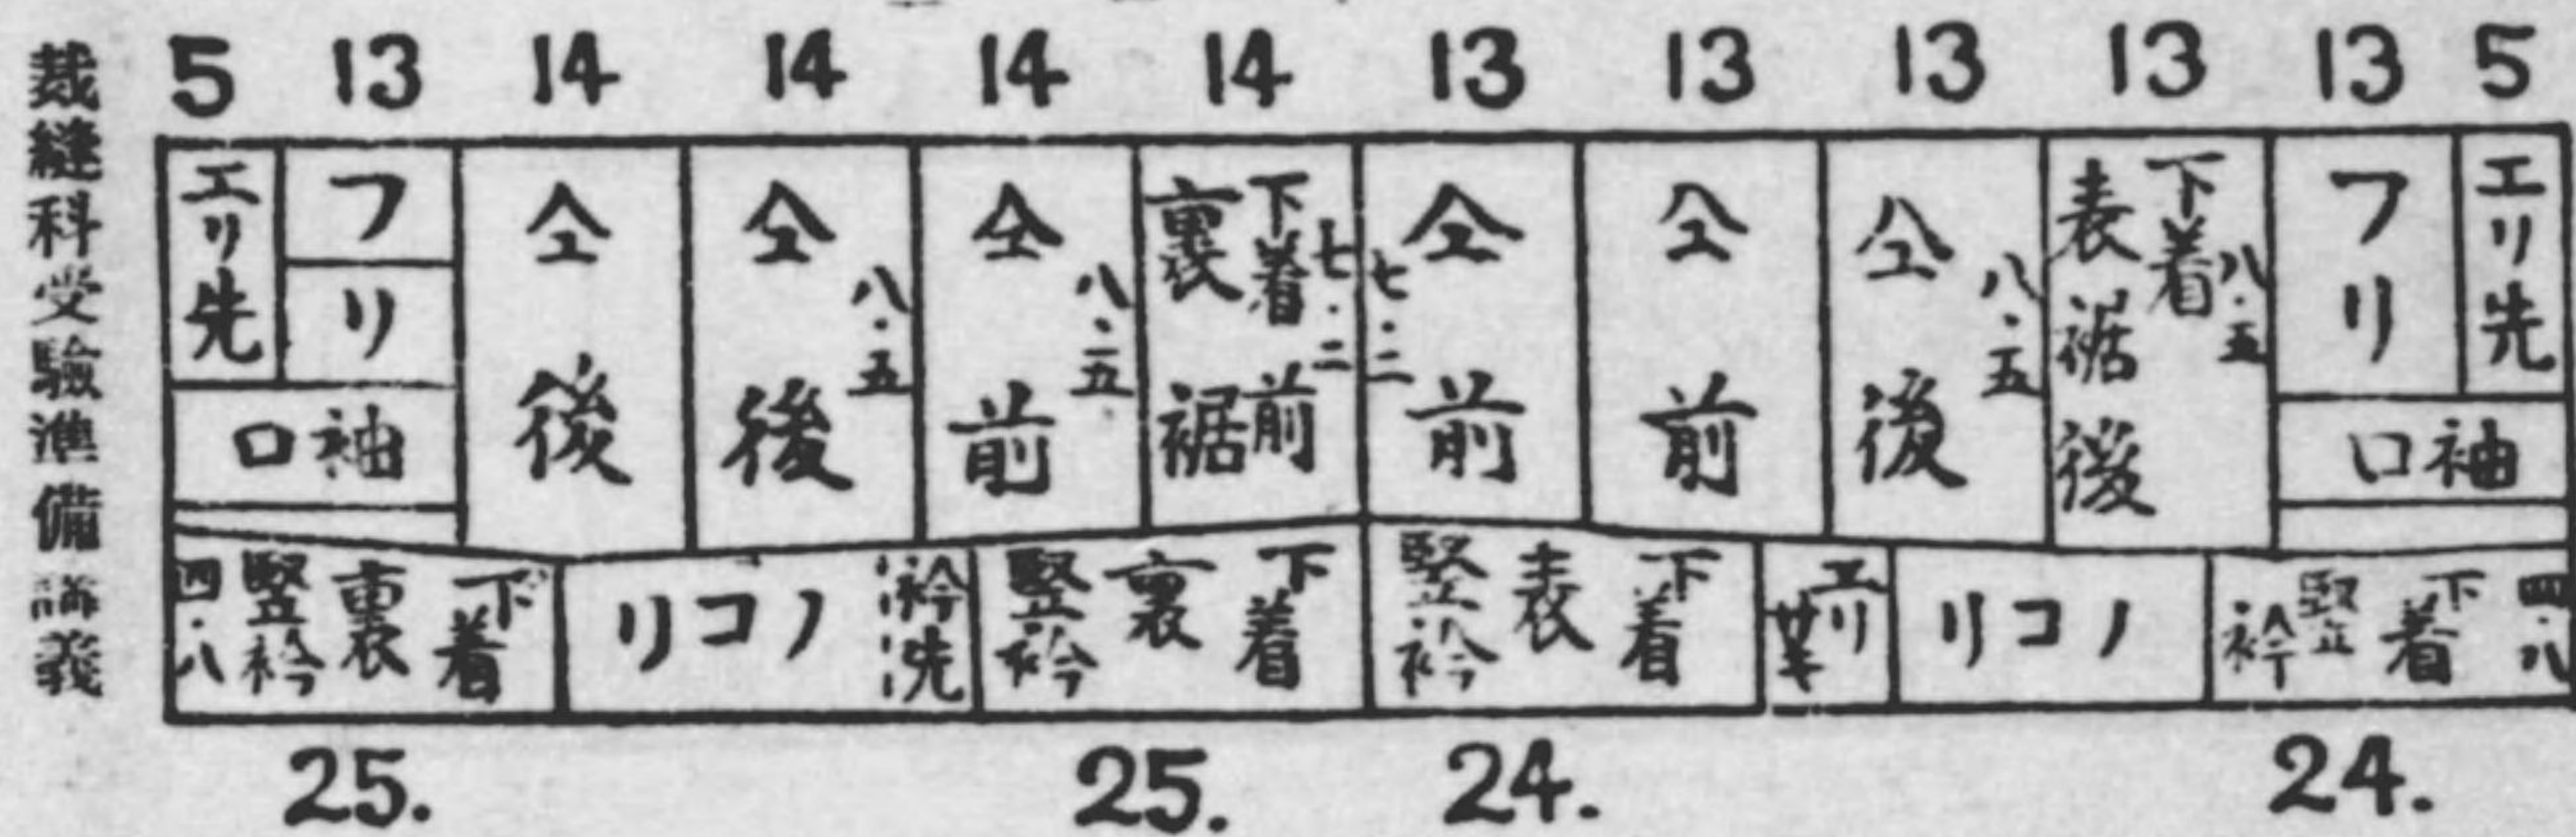 裁縫科受驗準備講義
5 13 14 14 14 14 13 13 13 13 13 5
エリ先
フリ
袖口
仝後
仝後
八・五
仝前
八・二五
下着前
裏裾
七・二
仝前
七・二
仝前
仝後
八・五
下着
表裾後
八・五
フリ
エリ先
袖口
下着
裏
竪衿
四・八
ノコリ
衿先
下着
裏
竪衿
下着
表
竪衿
エリ
ノコリ
下着
竪衿
四・八
25. 25. 24. 24.